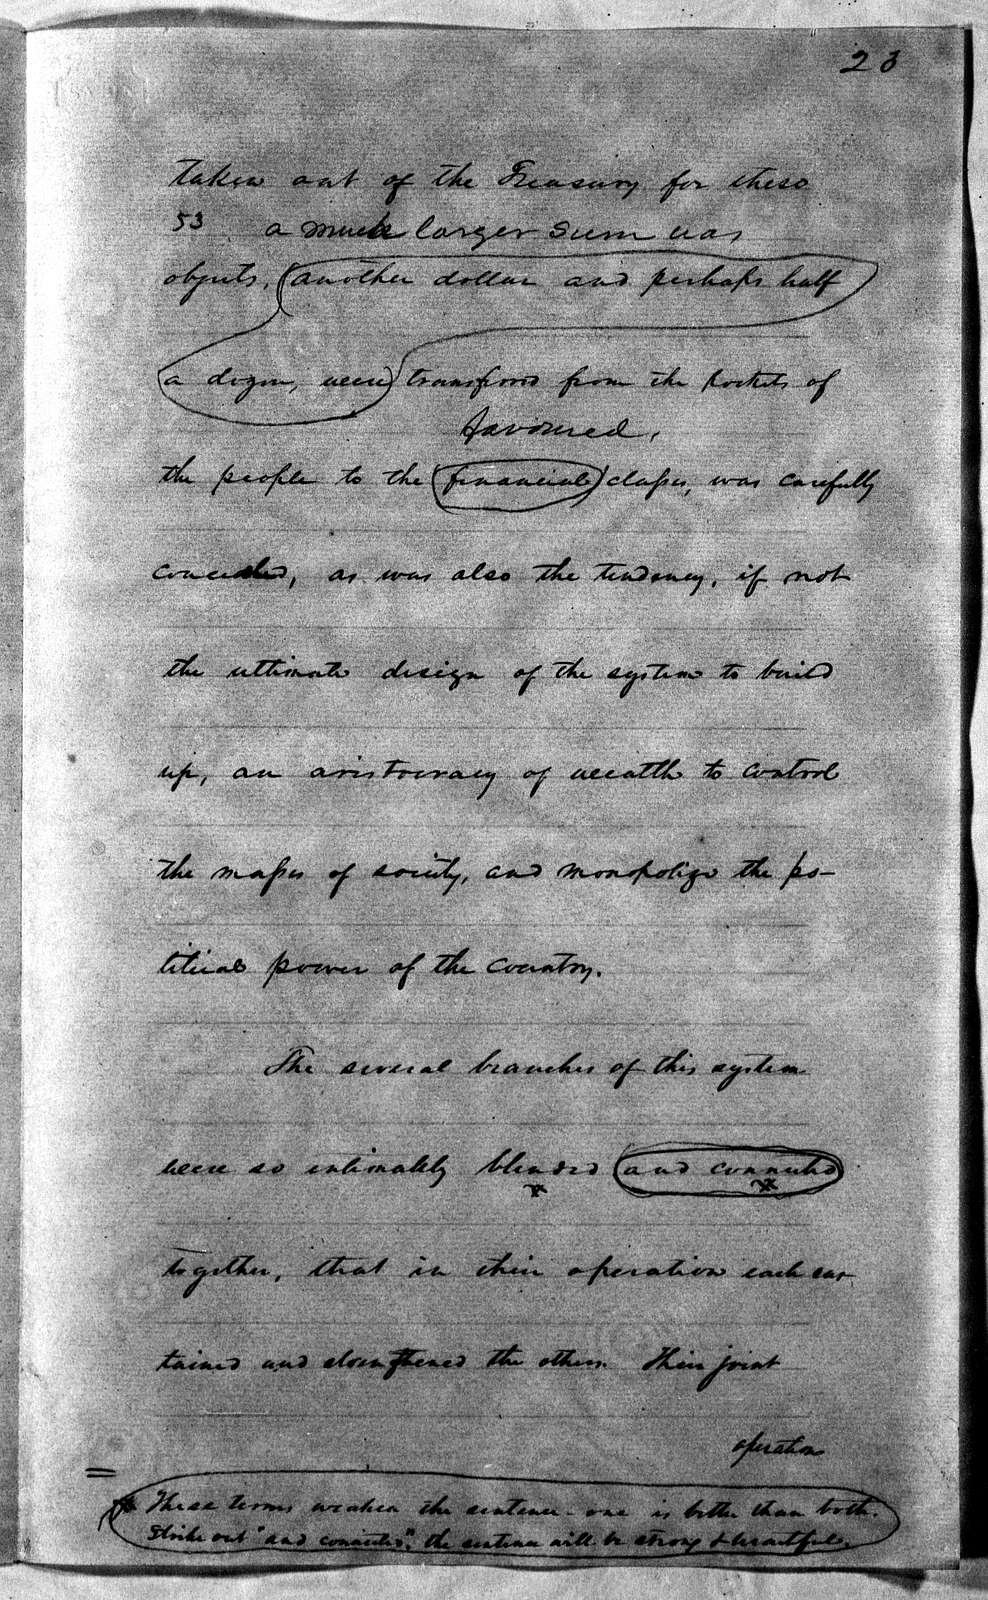 23
taken out of the Treasury for these
53 a much larger sum was
objects, another dollar and perhaps half
a dozen, were transferred from the pockets of
favoured,
the people to the financial classes, was carefully
concealed, as was also the tendency, if not
the ultimate design of the system to build
up, an aristocracy of wealth to control
the masses of society, and monopolize the po-
litical power of the country.
The several branches of this system
were so intimately blended and connected
together, that in their operation each sus-
tained and strengthened the others. Their joint
operation
These terms weaken the sentence - one is better than both.
Strike out "and connected", the sentence will be strong & beautiful.